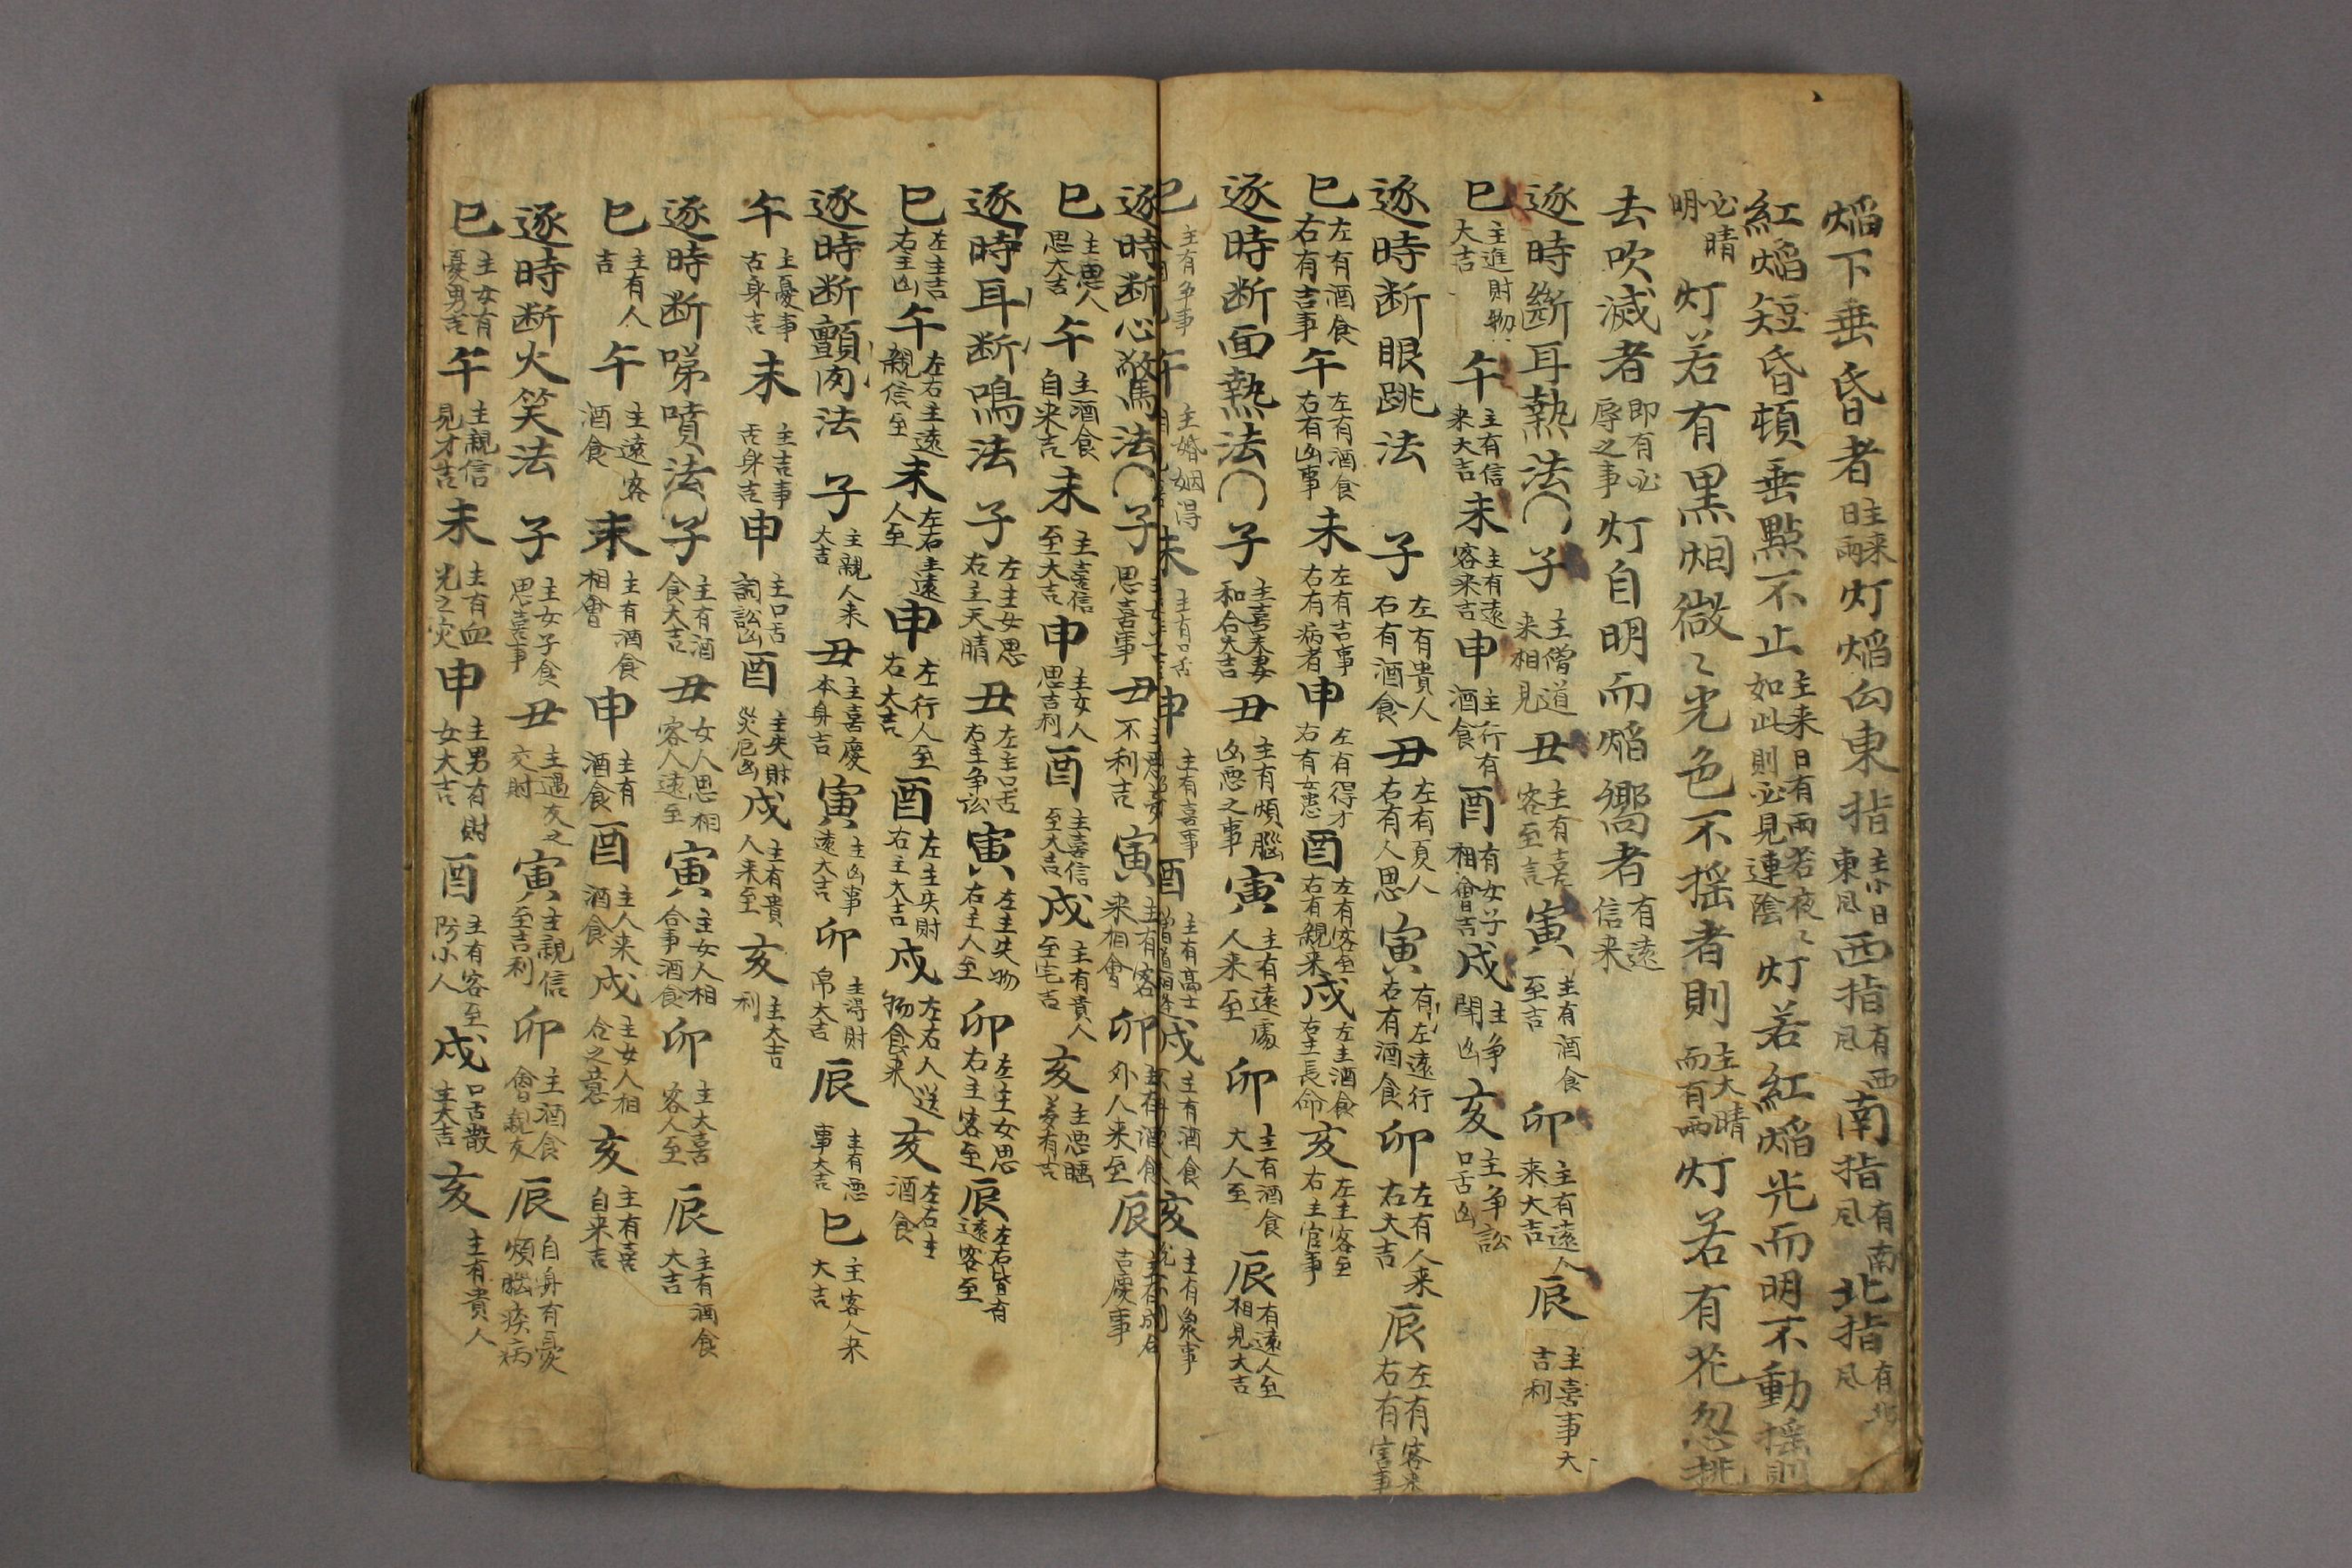 焰下垂昏者主来日雨灯焰向東指主來日東风西指有西风南指有南风北指有北风
紅焰短昏頓垂點不止主来日有雨若夜〻如此則必見連陰灯若紅焰光而明不動揺則
必晴明灯若有黒烟微〻光色不揺者則主大晴而有雨灯若有花忽挑
去吹滅者即有必辱之事灯自明而焰嚮者有遠信来
逐時斷耳熱法子主僧道来相見丑主有喜客至言寅主有酒食至吉卯主有遠人来大吉辰主喜事大吉利
巳主進財物大吉午主有信来大吉未主有遠客来吉申主行有酒食酉有女子相會吉戌主争閗凶亥主争訟口舌凶
逐時断眼跳法子左有貴人右有酒食丑左有夏人右有人思寅有左遠行右有酒食卯左有人来右大吉辰左有客来右有官事
巳左有酒食右有吉事午左有酒食右有凶事未左有吉事右有病者申左有得才右有女患酉左有客至右有親来戌左主酒食右主長命亥左主客至右主官事
逐時断面熱法子主喜夫妻和合大吉丑主有煩腦凶悪之事寅主有遠處人来至卯主有酒食大人至辰有遠人至相見大吉
巳主有争事午主婚姻得未主有口舌申主有喜事酉主有高士戌主有酒食亥主有衆事
逐時断心驚法子思喜事丑不利吉寅主有客来相會卯主有酒食外人来至辰主有成合吉慶事
巳主惡人思大吉午主酒食自来吉未主喜信至大吉申主女人思吉利酉主喜信至大吉戌主有貴人至宅吉亥主悪睡夢有吉
逐時耳断鳴法子左主女思右主天晴丑左主口舌右主争訟寅左主失物右主人至卯左主女思右主客至辰左右皆有遠客至
巳左主吉右主凶午左右主遠親信至未左右主遠人至申左行人至右大吉酉左主失財右主大吉戌左右人送物食来亥左右主酒食
逐時断顫肉法子主親人来大吉丑主喜慶本身吉寅主凶事遠大吉卯主得財帛大吉辰主有悪事大吉巳主客人来大吉
午主憂事古身吉未主吉事舌身吉申主口舌詞訟凶酉主失財災厄凶戌主有貴人来至亥主大吉利
逐時断嚏噴法子主有酒食大吉丑女人思相客人遠至寅主女人相合事酒食卯主大喜客人至辰主有酒食大吉
巳主有人吉午主遠客酒食未主有酒食相會申主有酒食酉主人来酒食戌主女人相合之意亥主有喜自来吉
逐時断火笑法子主女子食思喜事丑主過友之交財寅主親信至吉利卯主酒食會親友辰自身有憂煩腦疾病
巳主女有憂男吉午主親信見才吉未主有血光之灾申主男有財女大吉酉主有客至防小人戌口舌散主大吉亥主有貴人